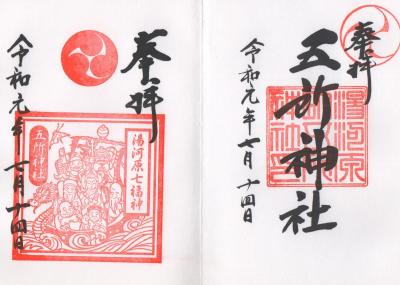 奉拝
五所神社
令和元年七月十四日
湯河原
奉拝
令和元年七月十四日
五所神社
湯河原七福神